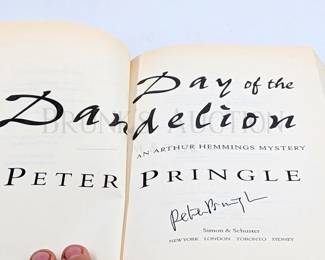 Day of the
Dandelion
BRUNE'S AUCTION
AN ARTHUR HEMMINGS MYSTERY
PETER PRINGLE
Peter Pringle
Simon & Schuster
NEW YORK LONDON TORONTO SYDNEY